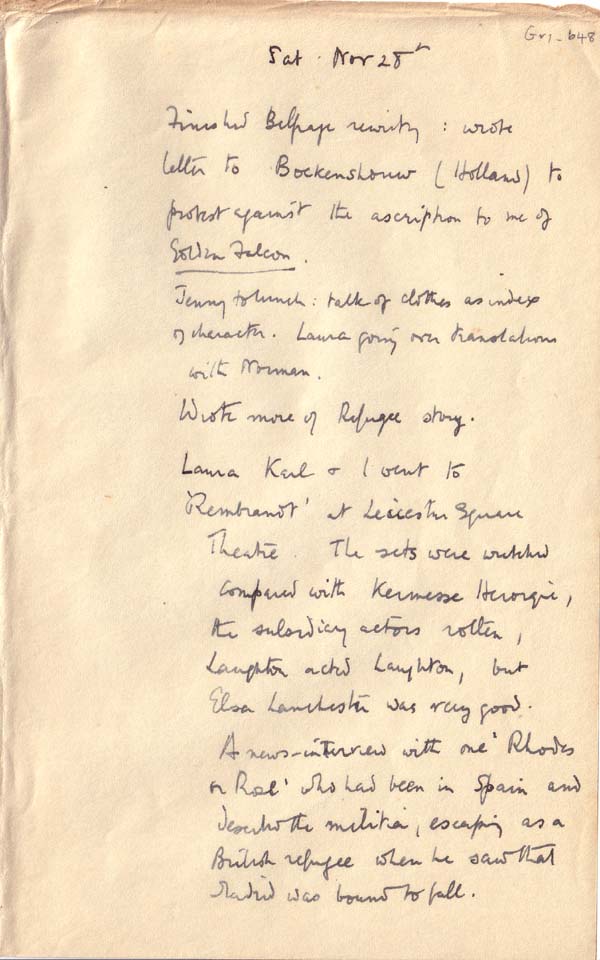 Gr1-648
Sat. Nov 28th
Finished Belfrage rewriting : wrote
letter to Bockenshouw (Holland) to
protest against the ascription to me of
Golden Falcon.
Jenny to lunch: talk of clothes as index
of character. Laura going over translations
with Norman.
Wrote more of Refugee story.
Laura Karl & I went to
'Rembrandt' at Leicester Square
Theatre. The sets were wretched
compared with Kermesse Heroique,
the subsidiary actors rotten,
Laughton acted Laughton, but
Elsa Lanchester was very good.
A news-interview with one 'Rhodes
or Rose' who had been in Spain and
the militia, escaping as a
British refugee when he saw that
Madrid was bound to fall.